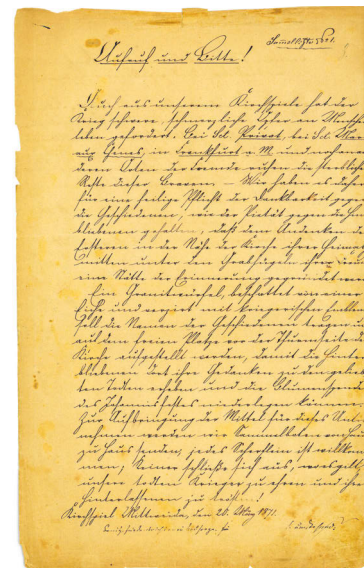 Aufruf und Bitte!
Auch aus unserem Kirchspiele hat der
Krieg schwere, schmerzliche Opfer an Menschen
leben gefordert. Bei St. Privat, bei St.
aux Chenes, in Frankfurt a. M. und noch
deren Orten der Fremde ruhen die sterblichen
Reste dieser Braven. — Wir haben es daher
für eine heilige Pflicht der Dankbarkeit gegen
die Geschiedenen, wie der Pietät gegen die Hinter
bliebenen gehalten, daß dem Andenken der
ersteren in der Nähe der Kirche ihrer Heimat
mitten unter den Grabhügeln ihrer
eine Stätte der Erinnerung gegründet werde
Ein Granitwürfel, beschattet von einer
Eiche und verziert mit kriegerischen
soll die Namen der Geschiedenen tragend
auf dem freien Platze vor der Thurmseite der
Kirche aufgestellt werden, damit die Hinter
bliebenen dort ihre Gedanken zu den geliebten
ten Todten erheben und die Blumenspende
des Johannisfestes niederlegen können.
Zur Aufbringung der Mittel für dieses Unter
nehmen werden wir Sammelboten von Haus
zu Haus senden; jedes Scherflein ist willkom
men, Keiner schließe sich aus, wo es gilt
unsere todten Krieger zu ehren und ihre
Hinterlassenen zu trösten!
Kirchspiel Mittweida, den 20. 1871.